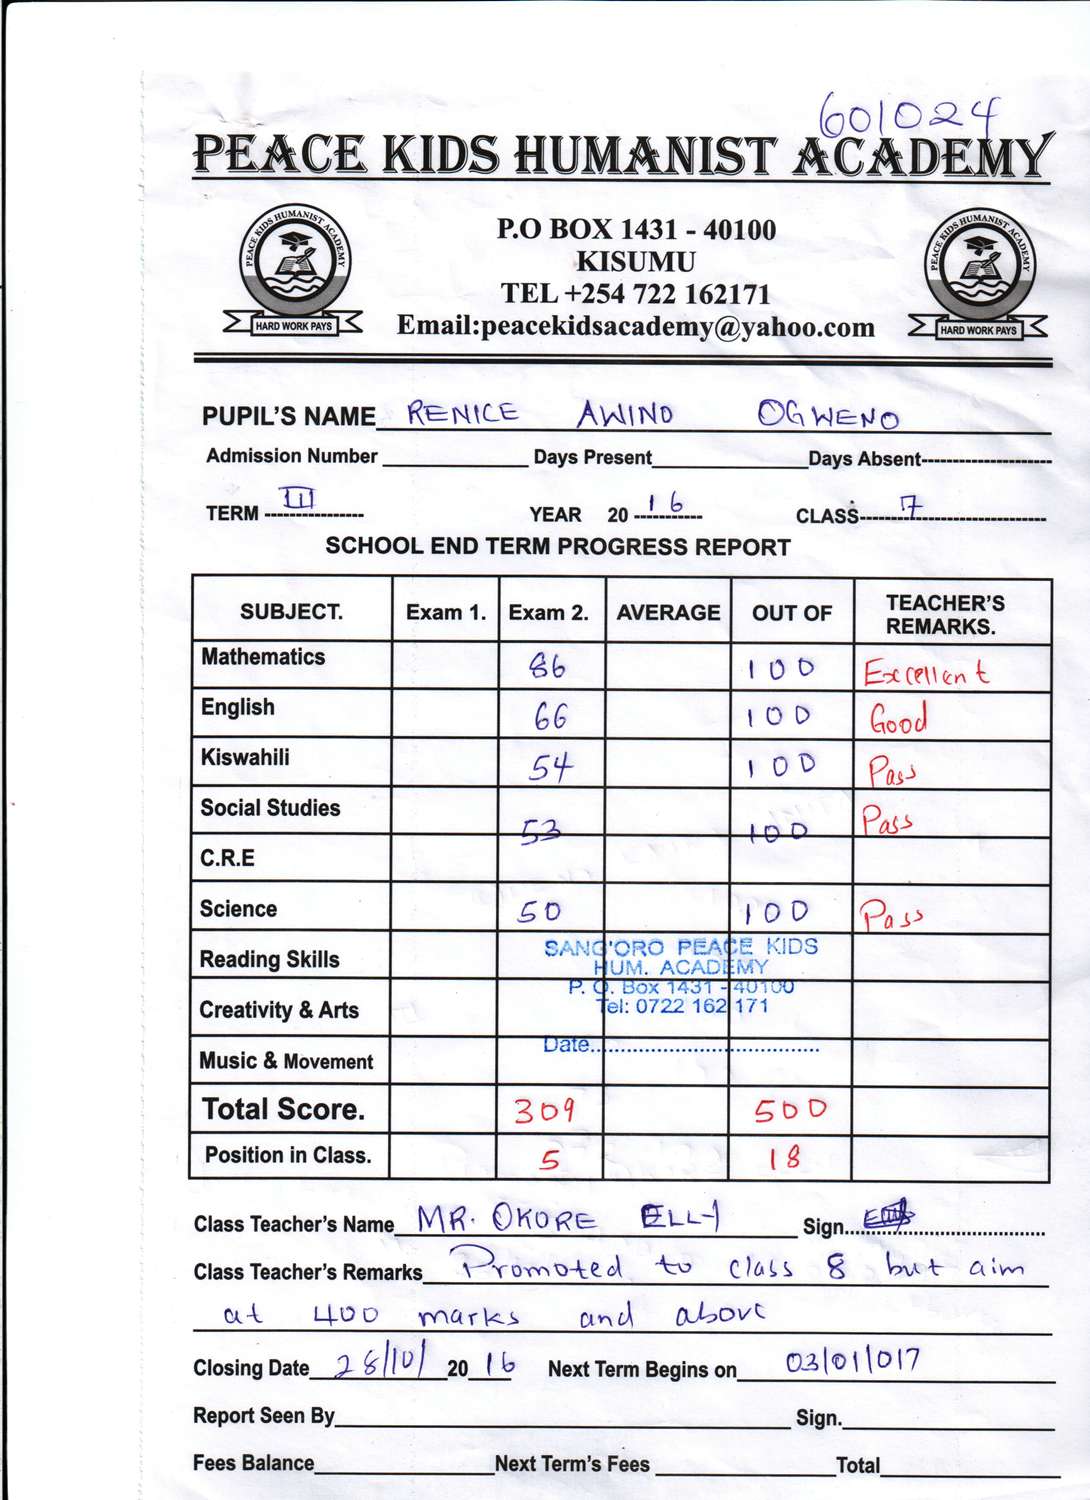 601024
PEACE KIDS HUMANIST ACADEMY
PEACE KIDS HUMANIST ACADEMY
HARD WORK PAYS
P.O BOX 1431 - 40100
KISUMU
TEL +254 722 162171
Email:peacekidsacademy@yahoo.com
PEACE KIDS HUMANIST ACADEMY
HARD WORK PAYS
PUPIL'S NAME RENICE AWINO OGWENO
Admission Number Days Present Days Absent
TERM III YEAR 2016 CLASS 7
SCHOOL END TERM PROGRESS REPORT
SUBJECT. Exam 1. Exam 2. AVERAGE OUT OF TEACHER'S REMARKS.
Mathematics 86 100 Excellent
English 66 100 Good
Kiswahili 54 100 Pass
Social Studies 53 100 Pass
C.R.E
Science 50 100 Pass
Reading Skills
Creativity & Arts
Music & Movement
SANG'ORO PEACE KIDS
HUM. ACADEMY
P. O. Box 1431 - 40100
Tel: 0722 162 171
Date
Total Score. 309 500
Position in Class. 5 18
Class Teacher's Name MR. OKORE ELLY Sign
Class Teacher's Remarks Promoted to class 8 but aim
at 400 marks and above
Closing Date 28/10/ 2016 Next Term Begins on 03/01/017
Report Seen By Sign.
Fees Balance Next Term's Fees Total